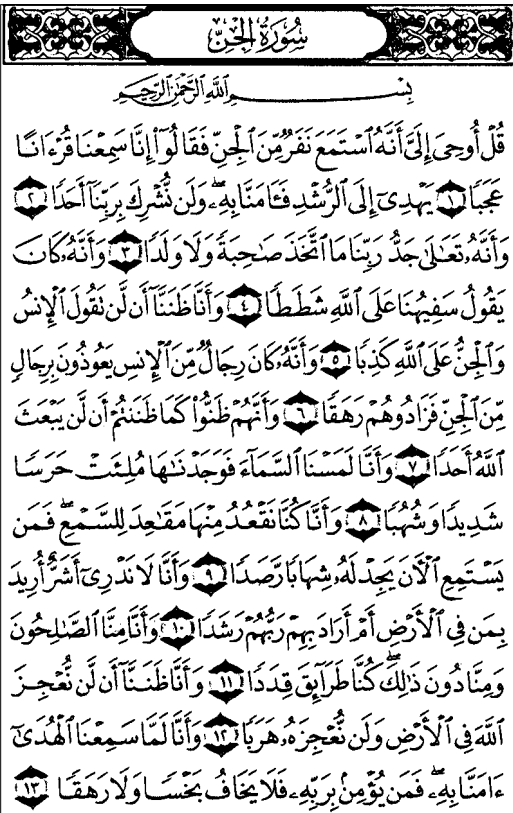 سُورَةُ الجِنّ
بِسْمِ اللَّهِ الرَّحْمَٰنِ الرَّحِيمِ
قُلْ أُوحِيَ إِلَيَّ أَنَّهُ ٱسْتَمَعَ نَفَرٌ مِّنَ ٱلْجِنِّ فَقَالُوٓا۟ إِنَّا سَمِعْنَا قُرْءَانًا
عَجَبًا ١ يَهْدِىٓ إِلَى ٱلرُّشْدِ فَـَٔامَنَّا بِهِۦۖ وَلَن نُّشْرِكَ بِرَبِّنَآ أَحَدًا ٢
وَأَنَّهُۥ تَعَٰلَىٰ جَدُّ رَبِّنَا مَا ٱتَّخَذَ صَٰحِبَةً وَلَا وَلَدًا ٣ وَأَنَّهُۥ كَانَ
يَقُولُ سَفِيهُنَا عَلَى ٱللَّهِ شَطَطًا ٤ وَأَنَّا ظَنَنَّآ أَن لَّن تَقُولَ ٱلْإِنسُ
وَٱلْجِنُّ عَلَى ٱللَّهِ كَذِبًا ٥ وَأَنَّهُۥ كَانَ رِجَالٌ مِّنَ ٱلْإِنسِ يَعُوذُونَ بِرِجَالٍ
مِّنَ ٱلْجِنِّ فَزَادُوهُمْ رَهَقًا ٦ وَأَنَّهُمْ ظَنُّوا۟ كَمَا ظَنَنتُمْ أَن لَّن يَبْعَثَ
ٱللَّهُ أَحَدًا ٧ وَأَنَّا لَمَسْنَا ٱلسَّمَآءَ فَوَجَدْنَٰهَا مُلِئَتْ حَرَسًا
شَدِيدًا وَشُهُبًا ٨ وَأَنَّا كُنَّا نَقْعُدُ مِنْهَا مَقَٰعِدَ لِلسَّمْعِۖ فَمَن
يَسْتَمِعِ ٱلْءَانَ يَجِدْ لَهُۥ شِهَابًا رَّصَدًا ٩ وَأَنَّا لَا نَدْرِىٓ أَشَرٌّ أُرِيدَ
بِمَن فِى ٱلْأَرْضِ أَمْ أَرَادَ بِهِمْ رَبُّهُمْ رَشَدًا ١٠ وَأَنَّا مِنَّا ٱلصَّٰلِحُونَ
وَمِنَّا دُونَ ذَٰلِكَۖ كُنَّا طَرَآئِقَ قِدَدًا ١١ وَأَنَّا ظَنَنَّآ أَن لَّن نُّعْجِزَ
ٱللَّهَ فِى ٱلْأَرْضِ وَلَن نُّعْجِزَهُۥ هَرَبًا ١٢ وَأَنَّا لَمَّا سَمِعْنَا ٱلْهُدَىٰٓ
ءَامَنَّا بِهِۦۖ فَمَن يُؤْمِنۢ بِرَبِّهِۦ فَلَا يَخَافُ بَخْسًا وَلَا رَهَقًا ١٣